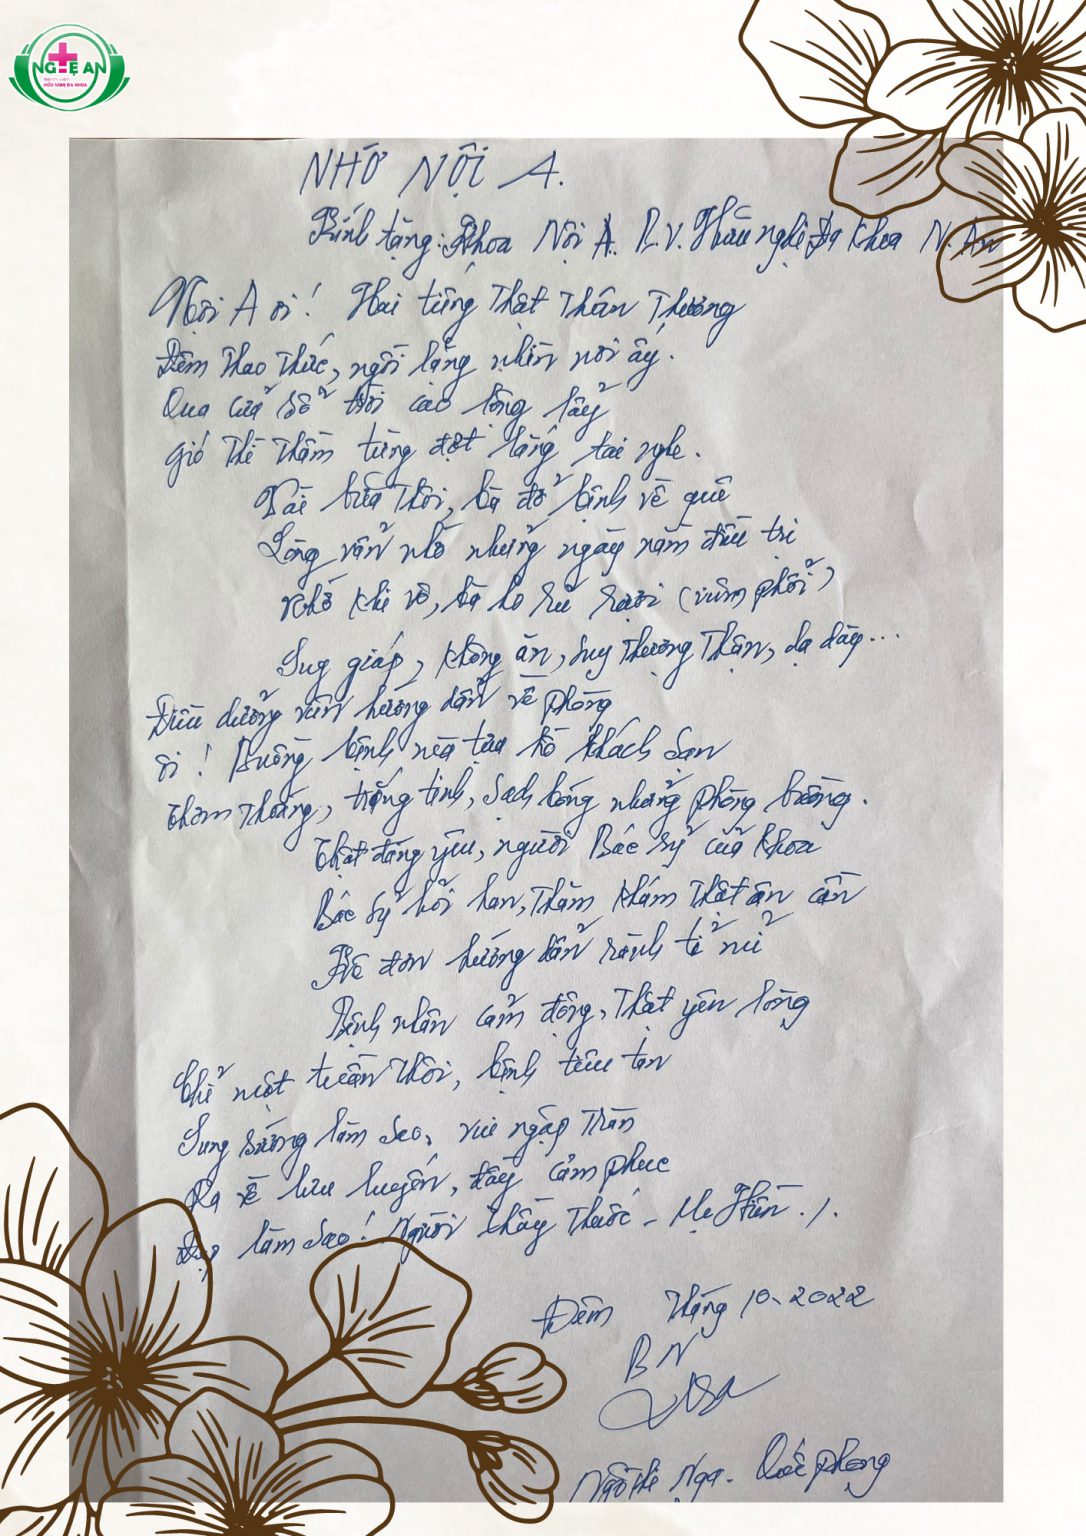 NGHỆ AN
BỆNH VIỆN
HỮU NGHỊ ĐA KHOA
NHỚ NỘI A.
Kính tặng: Khoa Nội A. B.V. Hữu nghị Đa khoa N. An
Nội A ơi! Hai tiếng thật thân thương
Đêm thao thức, ngồi lặng nhìn nơi ấy.
Qua cửa sổ trời cao lồng lẫy
Gió thì thầm từng đợt lắng tai nghe.
Vài bữa thôi, bà đỡ bệnh về quê
Lòng vẫn nhớ những ngày nằm điều trị
Nhớ khi vô, bà ho rũ rượi (viêm phổi)
Suy giáp, không ăn, suy thượng thận, dạ dày...
Điều dưỡng viên hướng dẫn về phòng
Ôi! Buồng bệnh mà tựa hồ khách sạn
Thơm thoáng, trắng tinh, sạch bóng những phòng buồng.
Thật đáng yêu, người Bác sỹ của khoa
Bác sỹ hỏi han, thăm khám thật ân cần
Kê đơn hướng dẫn rành tỉ mỉ
Bệnh nhân cảm động, thật yên lòng
Chỉ một tuần thôi, bệnh tiêu tan
Sung sướng làm sao, vui ngập tràn
Ra về lưu luyến, đầy cảm phục
Đẹp làm sao! Người thầy thuốc - Mẹ Hiền ./.
Đêm tháng 10-2022
BN
Nga
Ngô Thị Nga - Quốc phòng